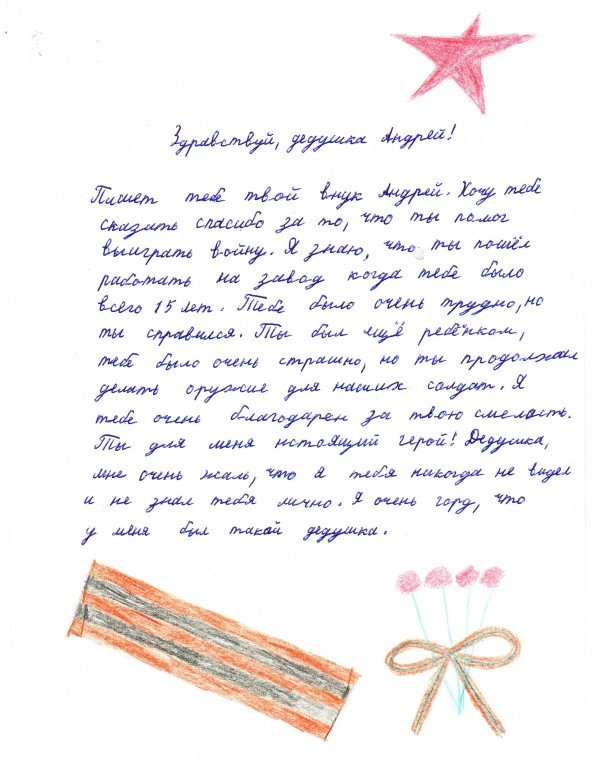 Здравствуй, дедушка Андрей!
Пишет тебе твой внук Андрей. Хочу тебе
сказать спасибо за то, что ты помог
выиграть войну. Я знаю, что ты пошёл
работать на завод когда тебе было
всего 15 лет. Тебе было очень трудно, но
ты справился. Ты был ещё ребёнком,
тебе было очень страшно, но ты продолжал
делать оружие для наших солдат. Я
тебе очень благодарен за твою смелость.
Ты для меня настоящий герой! Дедушка,
мне очень жаль, что я тебя никогда не видел
и не знал тебя лично. Я очень горд, что
у меня был такой дедушка.